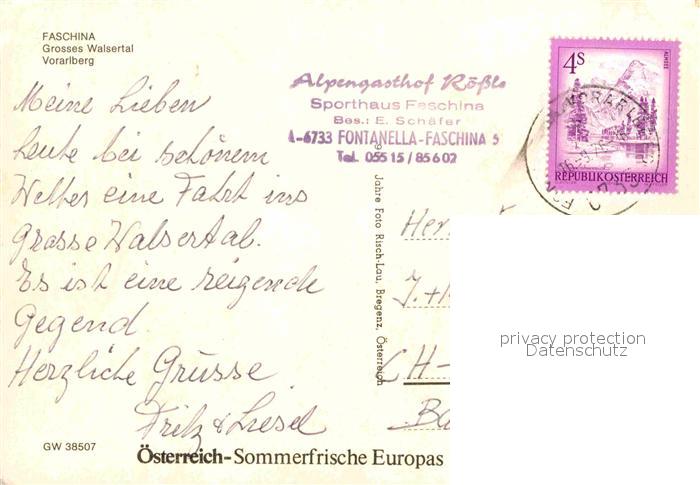 FASCHINA
Grosses Walsertal
Vorarlberg
Alpengasthof Rößle
Sporthaus Faschina
Bes.: E. Schäfer
A-6733 FONTANELLA-FASCHINA 5
Tel. 05515/85602
4S
ALMSEE
REPUBLIK ÖSTERREICH
VORARL
Meine Lieben
heute bei schönem
Wetter eine Fahrt ins
Grosse Walsertal.
Es ist eine reizende
Gegend.
Herzliche Grüsse
Fritz & Liesel
Jahre Foto Risch-Lau, Bregenz, Österreich
Her
J. +
(H-
Ba
privacy protection
Datenschutz
GW 38507
Österreich-Sommerfrische Europas